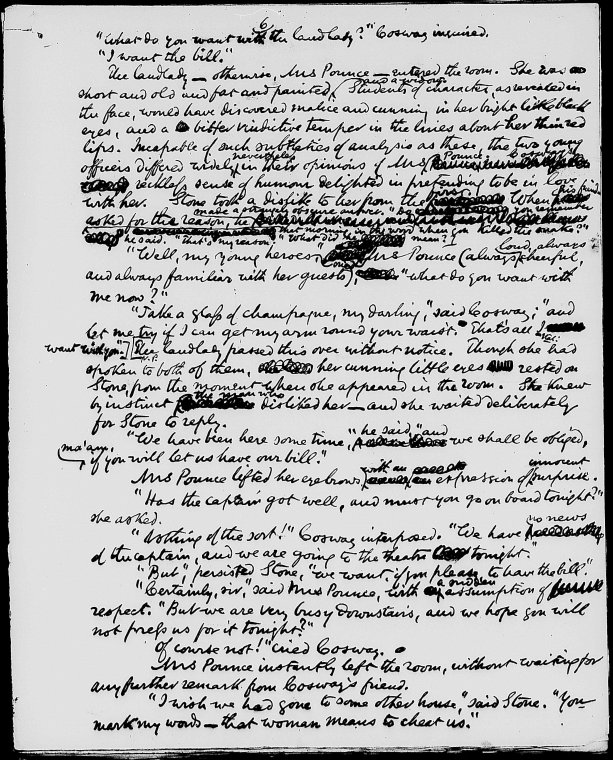 6
"What do you want with the landlady?" Cosway inquired.
"I want the bill."
The landlady — otherwise, Mrs Pounce — entered the room. She was
short and old and fat and painted, and a widow. Students of character, as revealed in
the face, would have discovered malice and cunning in her bright little black
eyes, and a bitter vindictive temper in the lines about her thin red
lips. Incapable of such subtleties of analysis as these, the two young
officers differed widely, nevertheless, in their opinions of Mrs Pounce. Cosway's
reckless sense of humour delighted in pretending to be in love
with her. Stone took a dislike to her from the first. When his friend
asked for the reason, he made a strangely obscure answer. "Do you remember
that morning in the wood when you killed the snake?"
he said. "That's my reason."
"Well, my young heroes," said Mrs Pounce (always loud, always cheerful,
and always familiar with her guests), "what do you want with
me now?"
"Take a glass of champagne, my darling," said Cosway; "and
let me try if I can get my arm round your waist. That's all I
want with you." The landlady passed this over without notice. Though she had
spoken to both of them, her cunning little eyes rested on
Stone, from the moment when she appeared in the room. She knew
by instinct the man who disliked her — and she waited deliberately
for Stone to reply.
"We have been here some time," he said, "and we shall be obliged,
ma'am, if you will let us have our bill."
Mrs Pounce lifted her eyebrows with an expression of innocent surprise.
"Has the captain got well, and must you go on board tonight?"
she asked.
"Nothing of the sort!" Cosway interposed. "We have no news
of the captain, and we are going to the theatre tonight."
"But," persisted Stone, "we want, if you please, to have the bill."
"Certainly, sir," said Mrs Pounce, with a sudden assumption of
respect. "But we are very busy downstairs, and we hope you will
not press us for it tonight?"
"Of course not!" cried Cosway.
Mrs Pounce instantly left the room, without waiting for
any further remark from Cosway's friend.
"I wish we had gone to some other house," said Stone. "You
mark my words — that woman means to cheat us."